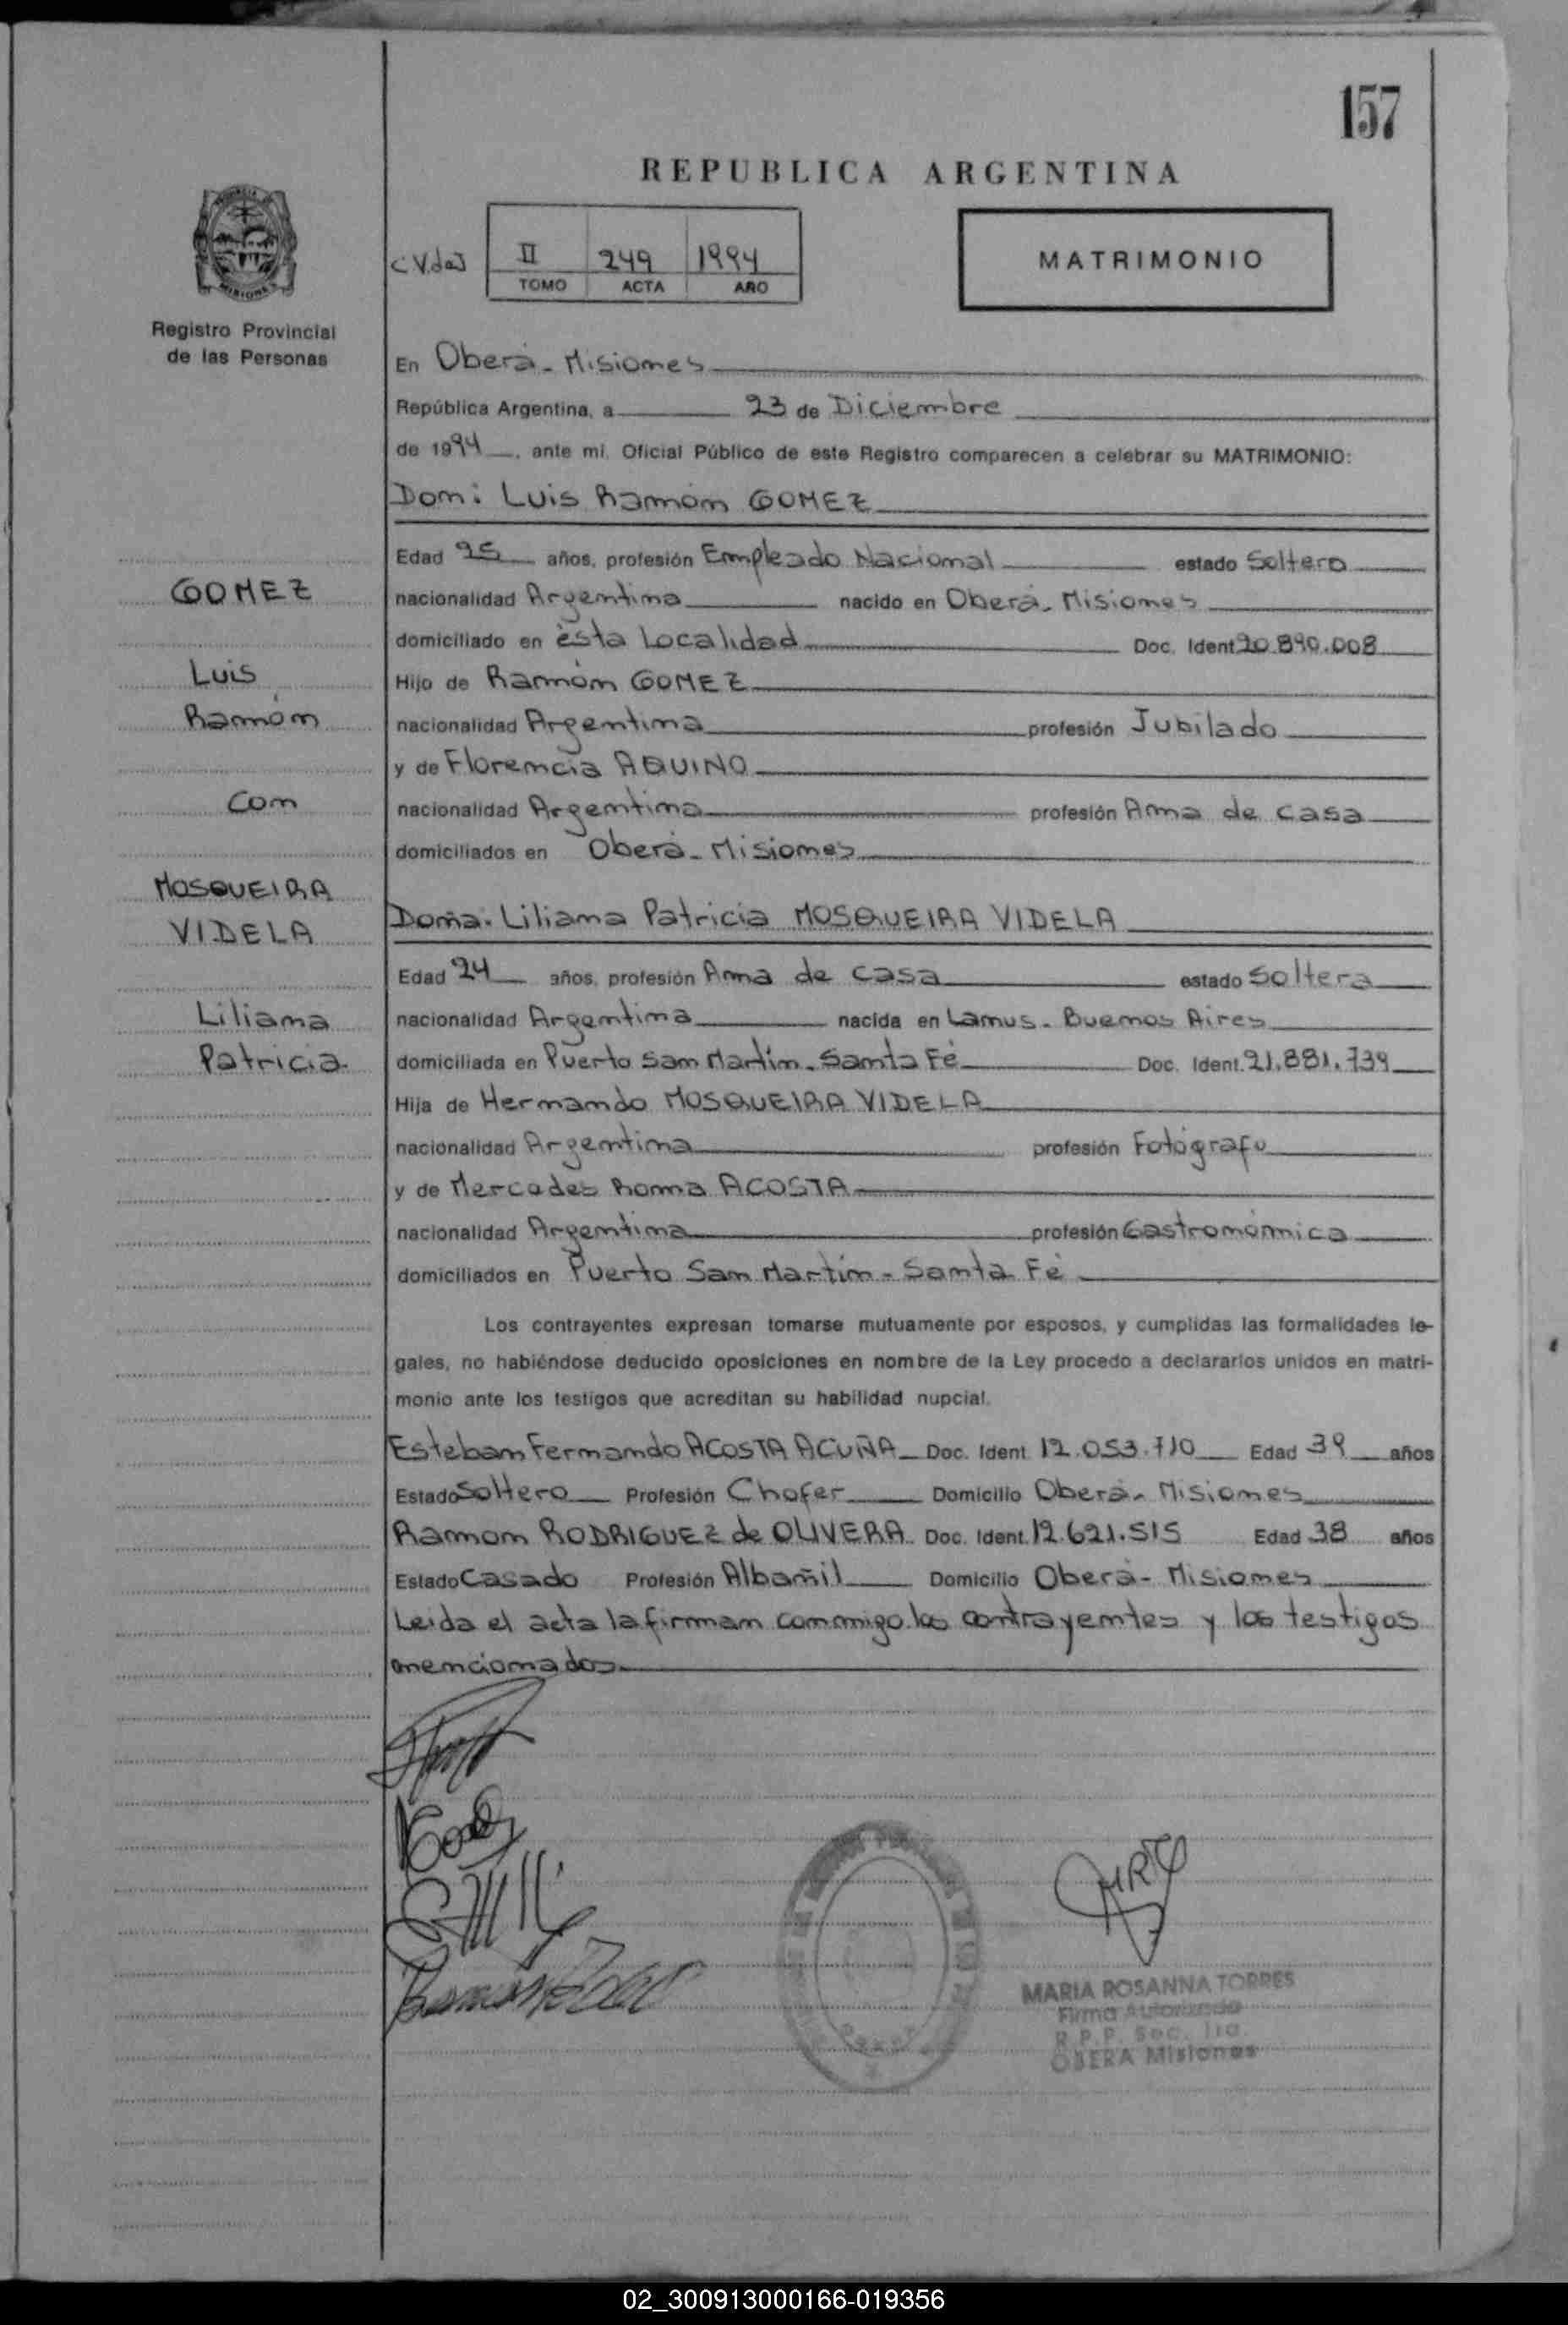 157
REPUBLICA ARGENTINA
MISIONES
Registro Provincial
de las Personas
II 249 1994
TOMO ACTA AÑO
MATRIMONIO
En Oberá - Misiones
República Argentina, a 23 de Diciembre
de 1994, ante mí, Oficial Público de este Registro comparecen a celebrar su MATRIMONIO:
Don: Luis Ramón GOMEZ
Edad 25 años, profesión Empleado Nacional estado Soltero
GOMEZ
nacionalidad Argentina nacido en Oberá - Misiones
domiciliado en ésta Localidad Doc. Ident 20.890.008
Luis
Hijo de Ramón GOMEZ
Ramón
nacionalidad Argentina profesión Jubilado
y de Florencia AQUINO
Con
nacionalidad Argentina profesión Ama de casa
domiciliados en Oberá - Misiones
MOSQUEIRA
VIDELA
Doña: Liliana Patricia MOSQUEIRA VIDELA
Edad 24 años, profesión Ama de casa estado Soltera
Liliana
nacionalidad Argentina nacida en Lanus - Buenos Aires
Patricia.
domiciliada en Puerto San Martín - Santa Fé Doc. Ident. 21.881.739
Hija de Hernando MOSQUEIRA VIDELA
nacionalidad Argentina profesión Fotógrafo
y de Mercedes Ronna ACOSTA
nacionalidad Argentina profesión Gastronómica
domiciliados en Puerto San Martín - Santa Fé
Los contrayentes expresan tomarse mutuamente por esposos, y cumplidas las formalidades le-
gales, no habiéndose deducido oposiciones en nombre de la Ley procedo a declararlos unidos en matri-
monio ante los testigos que acreditan su habilidad nupcial.
Esteban Fernando ACOSTA ACUÑA Doc. Ident. 12.053.710 Edad 39 años
Estado Soltero Profesión Chofer Domicilio Oberá - Misiones
Ramon RODRIGUEZ de OLIVERA Doc. Ident. 12.621.515 Edad 38 años
Estado Casado Profesión Albañil Domicilio Oberá - Misiones
Leida el acta la firman conmigo los contrayentes y los testigos
mencionados
MARIA ROSANNA TORRES
Firma Autorizada
R.P.P. Sec. 1ra.
OBERA Misiones
02_300913000166-019356